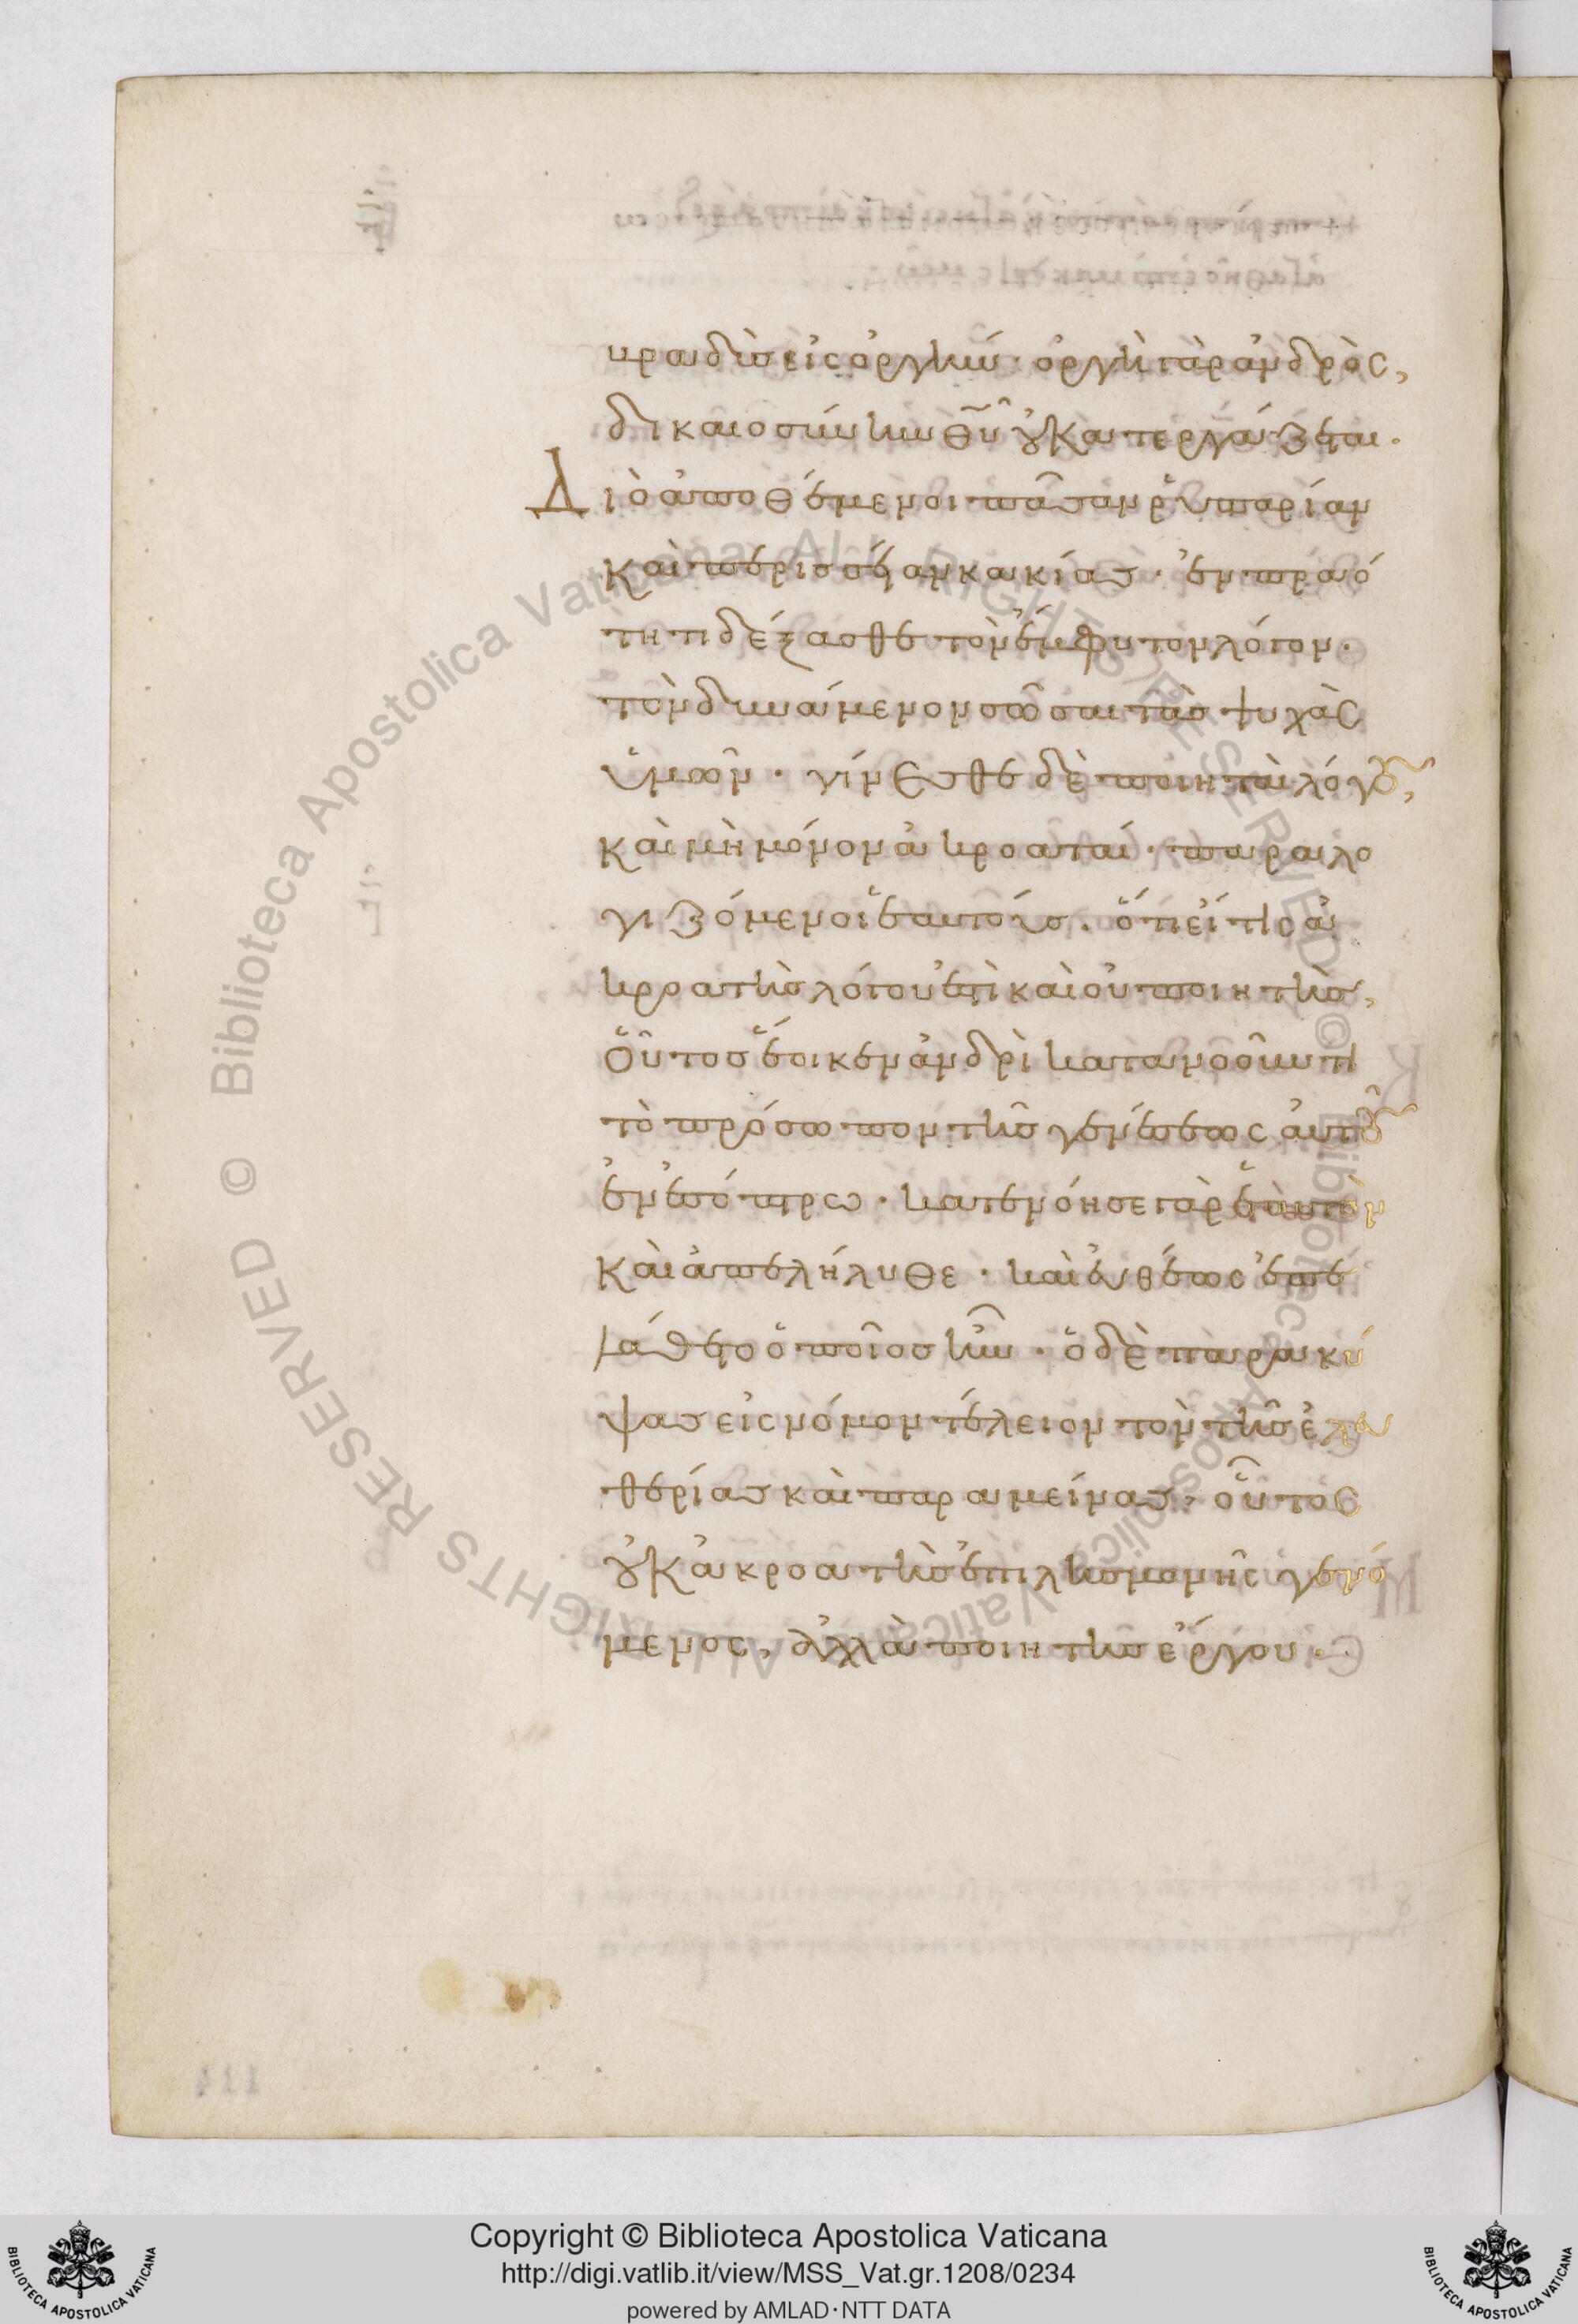 βραδὺς εἰς ὀργήν· ὀργὴ γὰρ ἀνδρὸς,
δικαιοσύνην θῡ οὐ κατεργάζεται.
Διὸ ἀποθέμενοι πᾶσαν ῥυπαρίαν
καὶ περισσείαν κακίας· ἐν πραό
τητι δέξασθε τὸν ἔμφυτον λόγον.
τὸν δυνάμενον σῶσαι τὰς ψυχὰς
ὑμῶν· γίνεσθε δὲ ποιηταὶ λόγου,
καὶ μὴ μόνον ἀκροαταί· παραλο
γιζόμενοι ἑαυτούς. ὅτι εἴ τις ἀ
κροατὴς λόγου ἐστὶ καὶ οὐ ποιητὴς,
οὗτος ἔοικεν ἀνδρὶ κατανοοῦντι
τὸ πρόσωπον τῆς γενέσεως αὐτοῦ
ἐν ἐσόπτρω· κατενόησε γὰρ ἑαυτὸν
καὶ ἀπελήλυθε· καὶ εὐθέως ἐπε
λάθετο ὁποῖος ἦν· ὁ δὲ παρακύ
ψας εἰς νόμον τέλειον τὸν τῆς ἐλευ
θερίας καὶ παραμείνας, οὗτος
οὐκ ἀκροατὴς ἐπιλησμονῆς γενό
μενος, ἀλλὰ ποιητὴς ἔργου.
Copyright © Biblioteca Apostolica Vaticana
http://digi.vatlib.it/view/MSS_Vat.gr.1208/0234
powered by AMLAD·NTT DATA
© Biblioteca Apostolica Vaticana ALL RIGHTS RESERVED
© Biblioteca Apostolica Vaticana ALL RIGHTS RESERVED
BIBLIOTECA APOSTOLICA VATICANA
BIBLIOTECA APOSTOLICA VATICANA